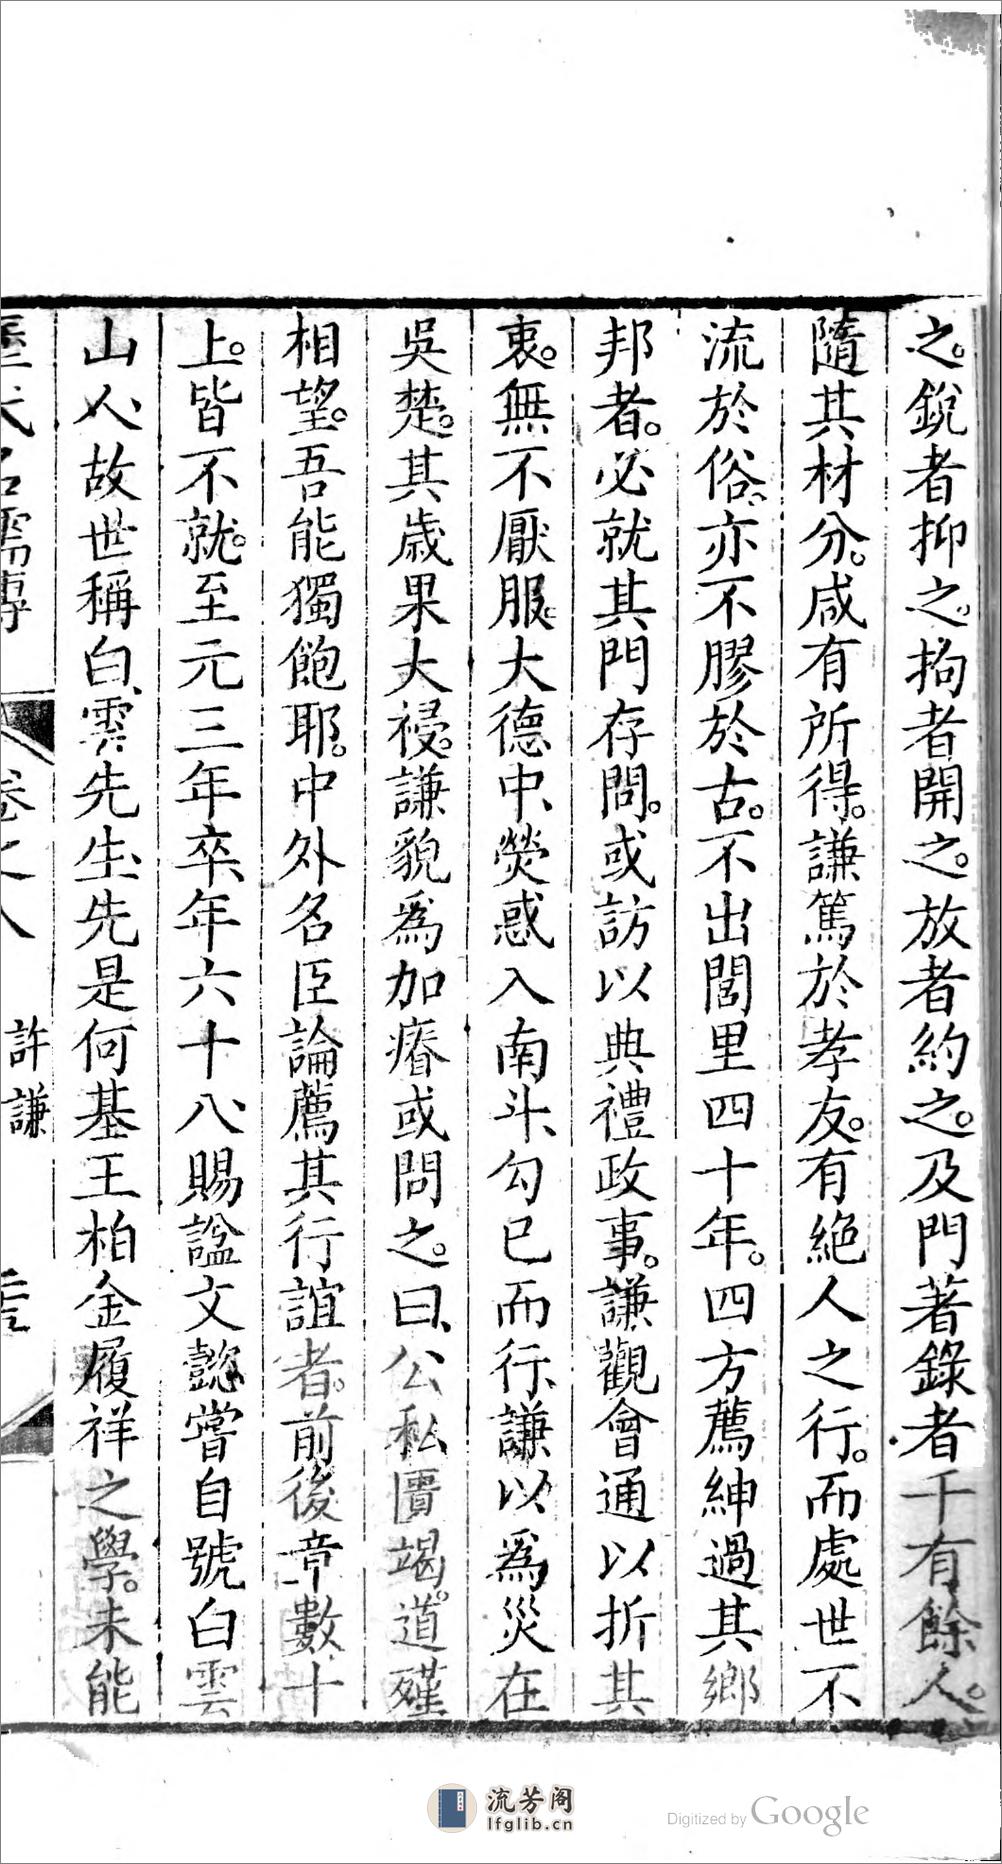 之。銳者抑之。拘者開之。放者約之。及門著錄者千有餘人。
隨其材分。咸有所得。謙篤於孝友。有絕人之行。而處世不
流於俗。亦不膠於古。不出閭里四十年。四方薦紳過其鄉
邦者。必就其門存問。或訪以典禮政事。謙觀會通以折其
衷。無不厭服。大德中、熒惑入南斗、勾已而行、謙以爲災在
吳楚。其歲果大祲。謙貌爲加瘠或問之。曰、公私匱竭。道殣
相望。吾能獨飽耶。中外名臣論薦其行誼者。前後章數十
上。皆不就。至元三年卒、年六十八、賜諡文懿、嘗自號白雲
山人、故世稱白雲先生、先是何基王柏金履祥之學。未能
歷代名儒傳
卷之八
許謙
Digitized by Google
流芳阁
lfglib.cn